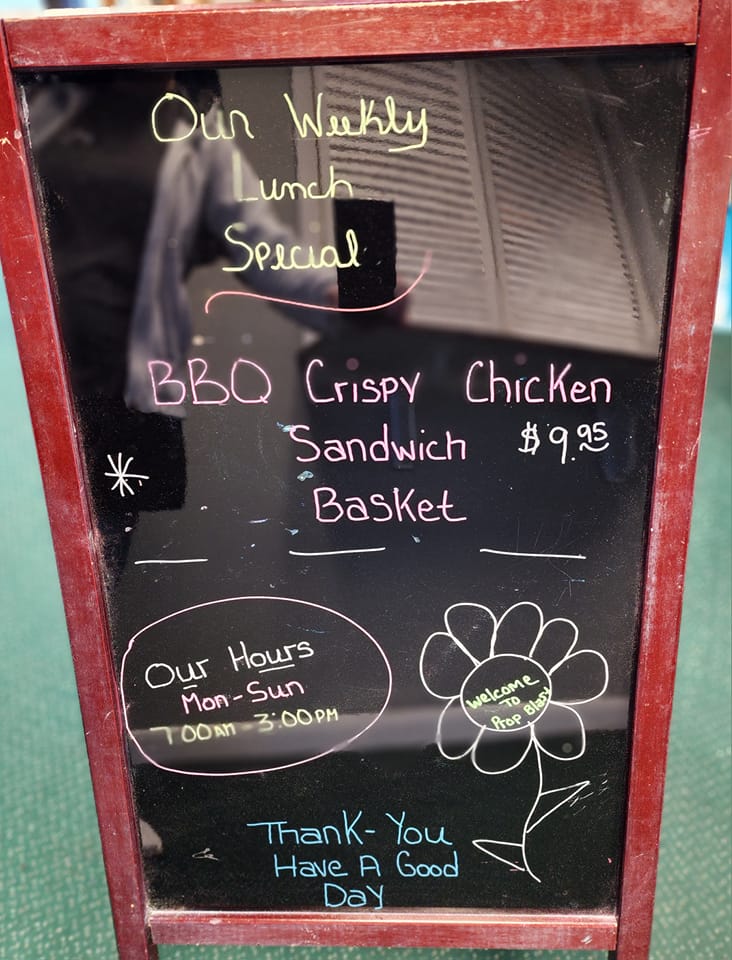 Our Weekly
Lunch
Special
BBQ Crispy Chicken
Sandwich $9.95
Basket
Our Hours
Mon-Sun
7:00AM - 3:00PM
Welcome
To
Prop Blast
Thank-You
Have A Good
Day